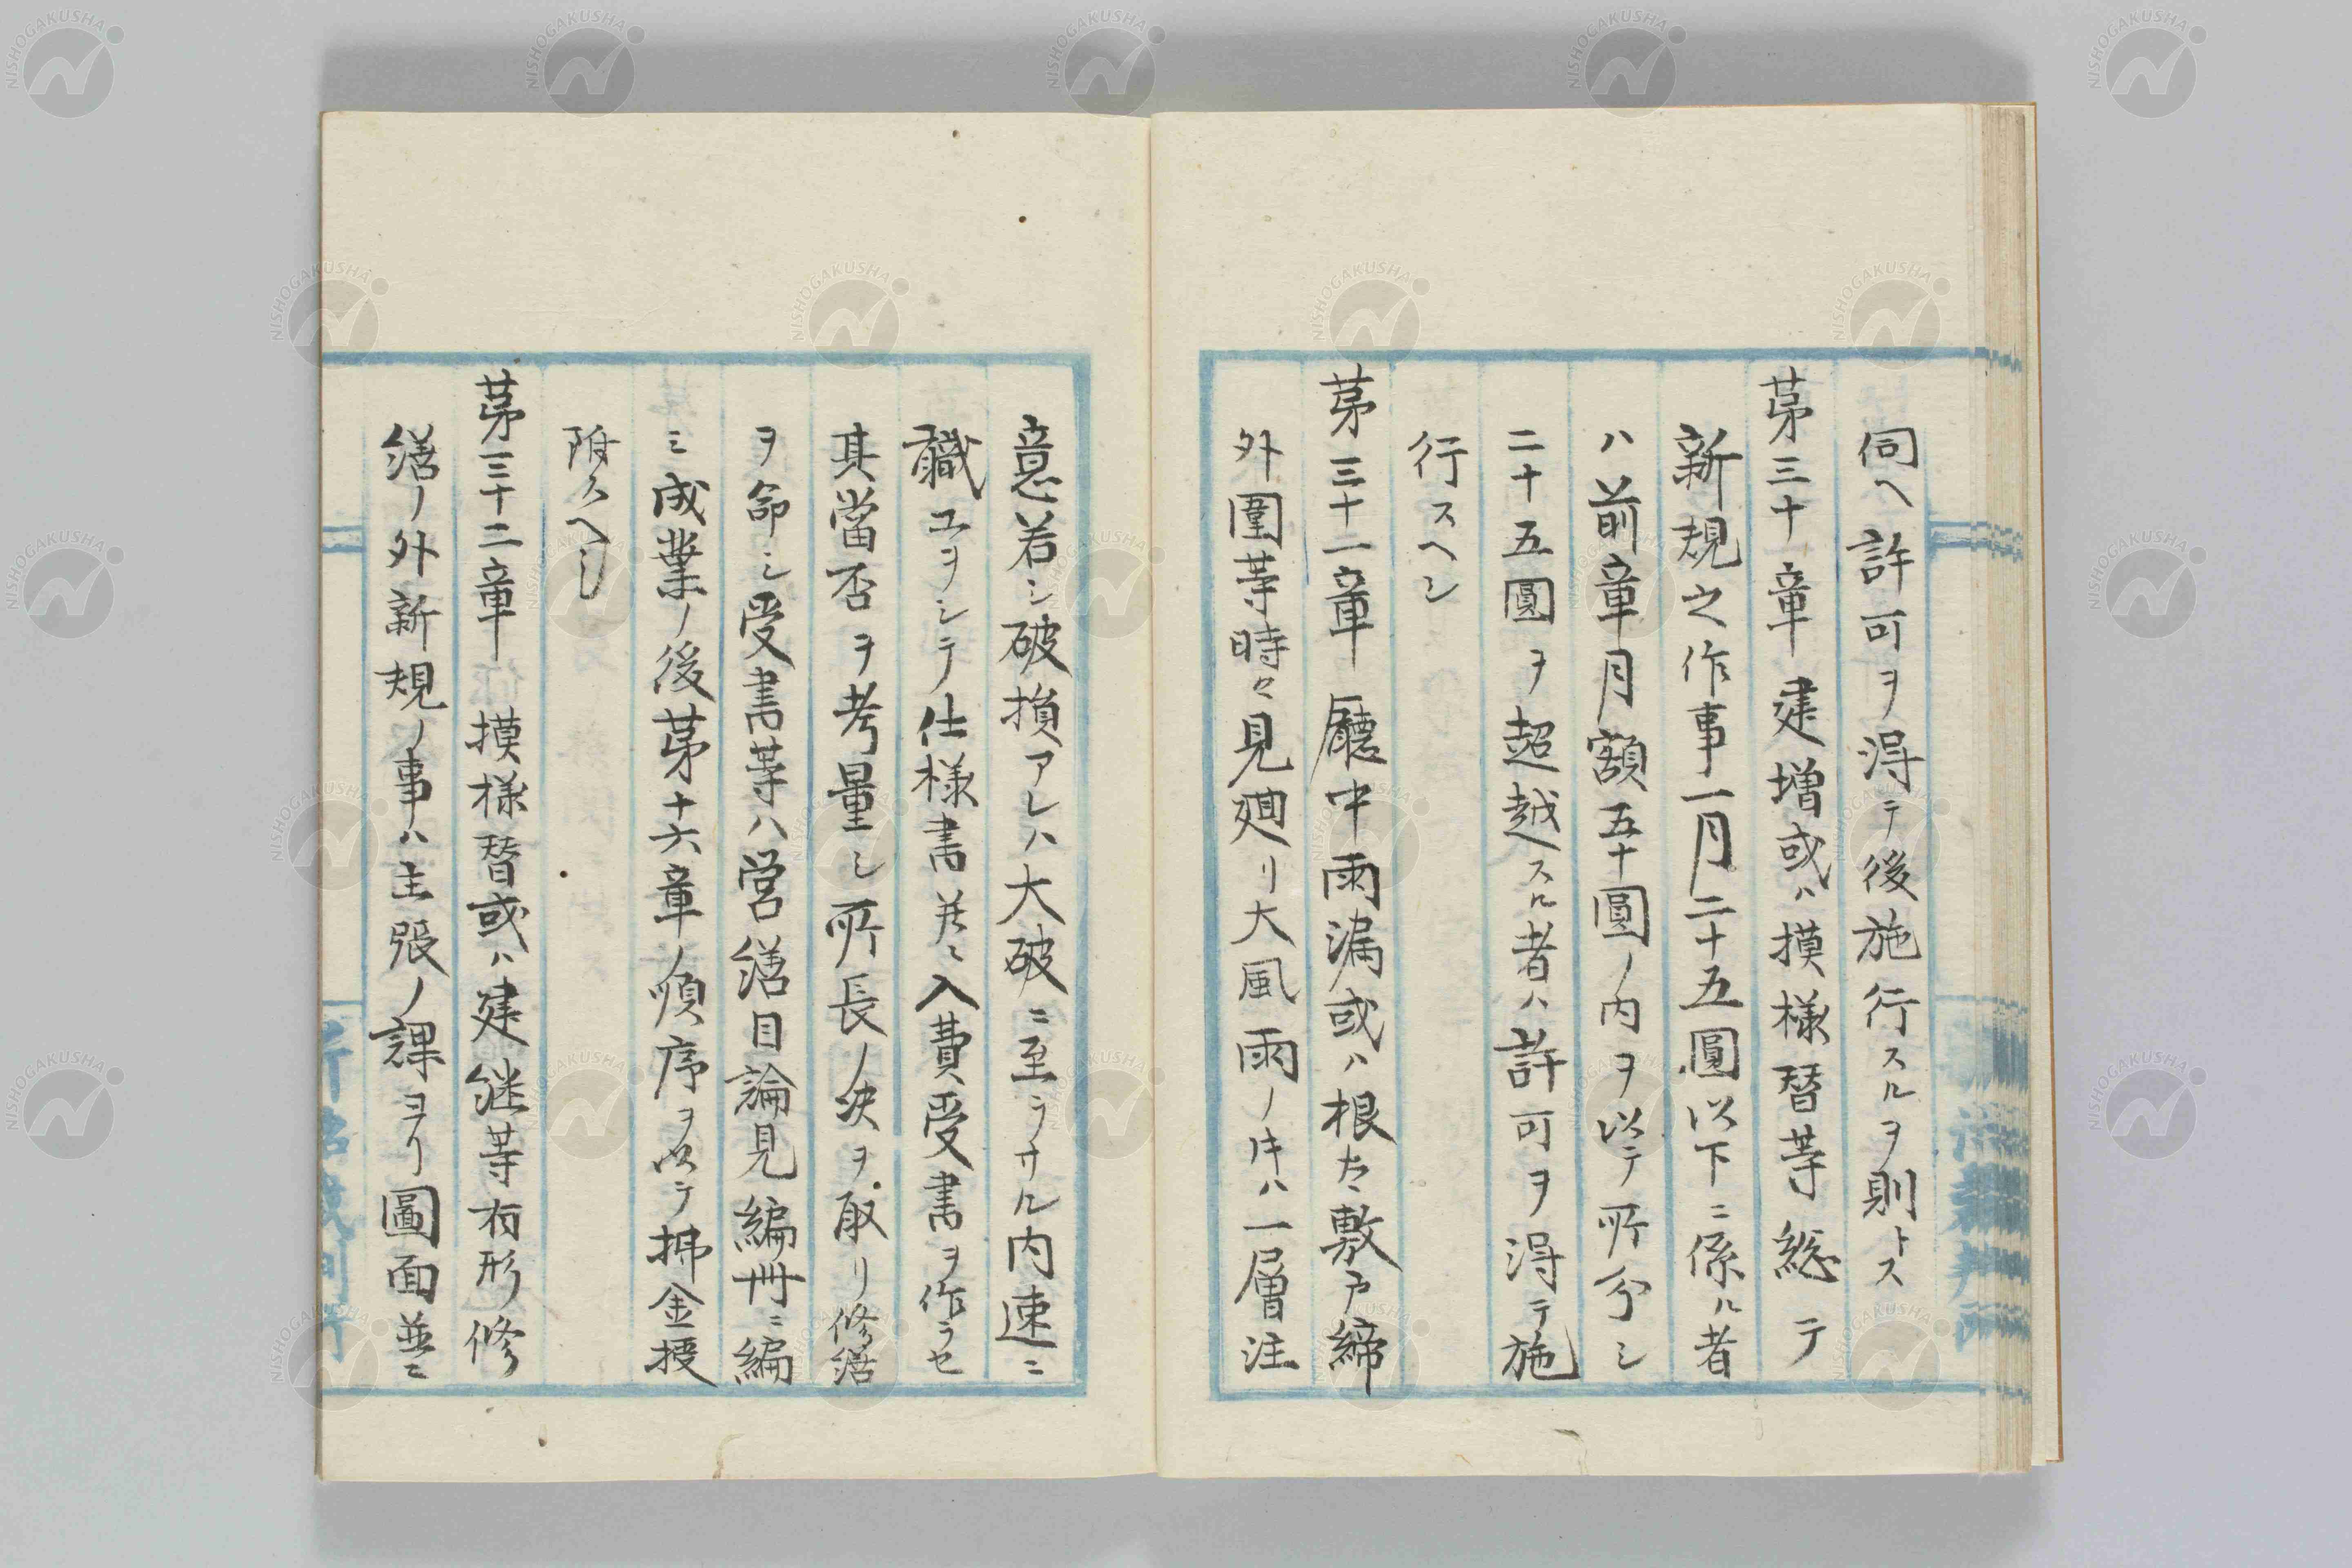 伺ヘ許可ヲ得テ後施行スルヲ則トス
第三十章建増或ハ摸様替等総テ
新規之作事一月二十五圓以下ニ係ル者
ハ前章月額五十圓ノ内ヲ以テ所分シ
二十五圓ヲ超越スル者ハ許可ヲ得テ施
行スヘシ
第三十一章廳中雨漏或ハ根太敷戸締
外圍等時々見廻リ大風雨ノ𪜈ハ一層注
意若シ破損アレハ大破ニ至ラサル内速ニ
職工ヲシテ仕様書并ニ入費受書ヲ作ラセ
其當否ヲ考量シ所長ノ決ヲ取リ修繕
ヲ命シ受書等ハ営繕目論見編冊ニ編
ミ成業ノ後第十六章ノ順序ヲ以テ拂金授
附スヘシ
第三十二章摸様替或ハ建継等有形修
繕ノ外新規ノ事ハ主張ノ課ヨリ圖面並ニ
NISHOGAKUSHA